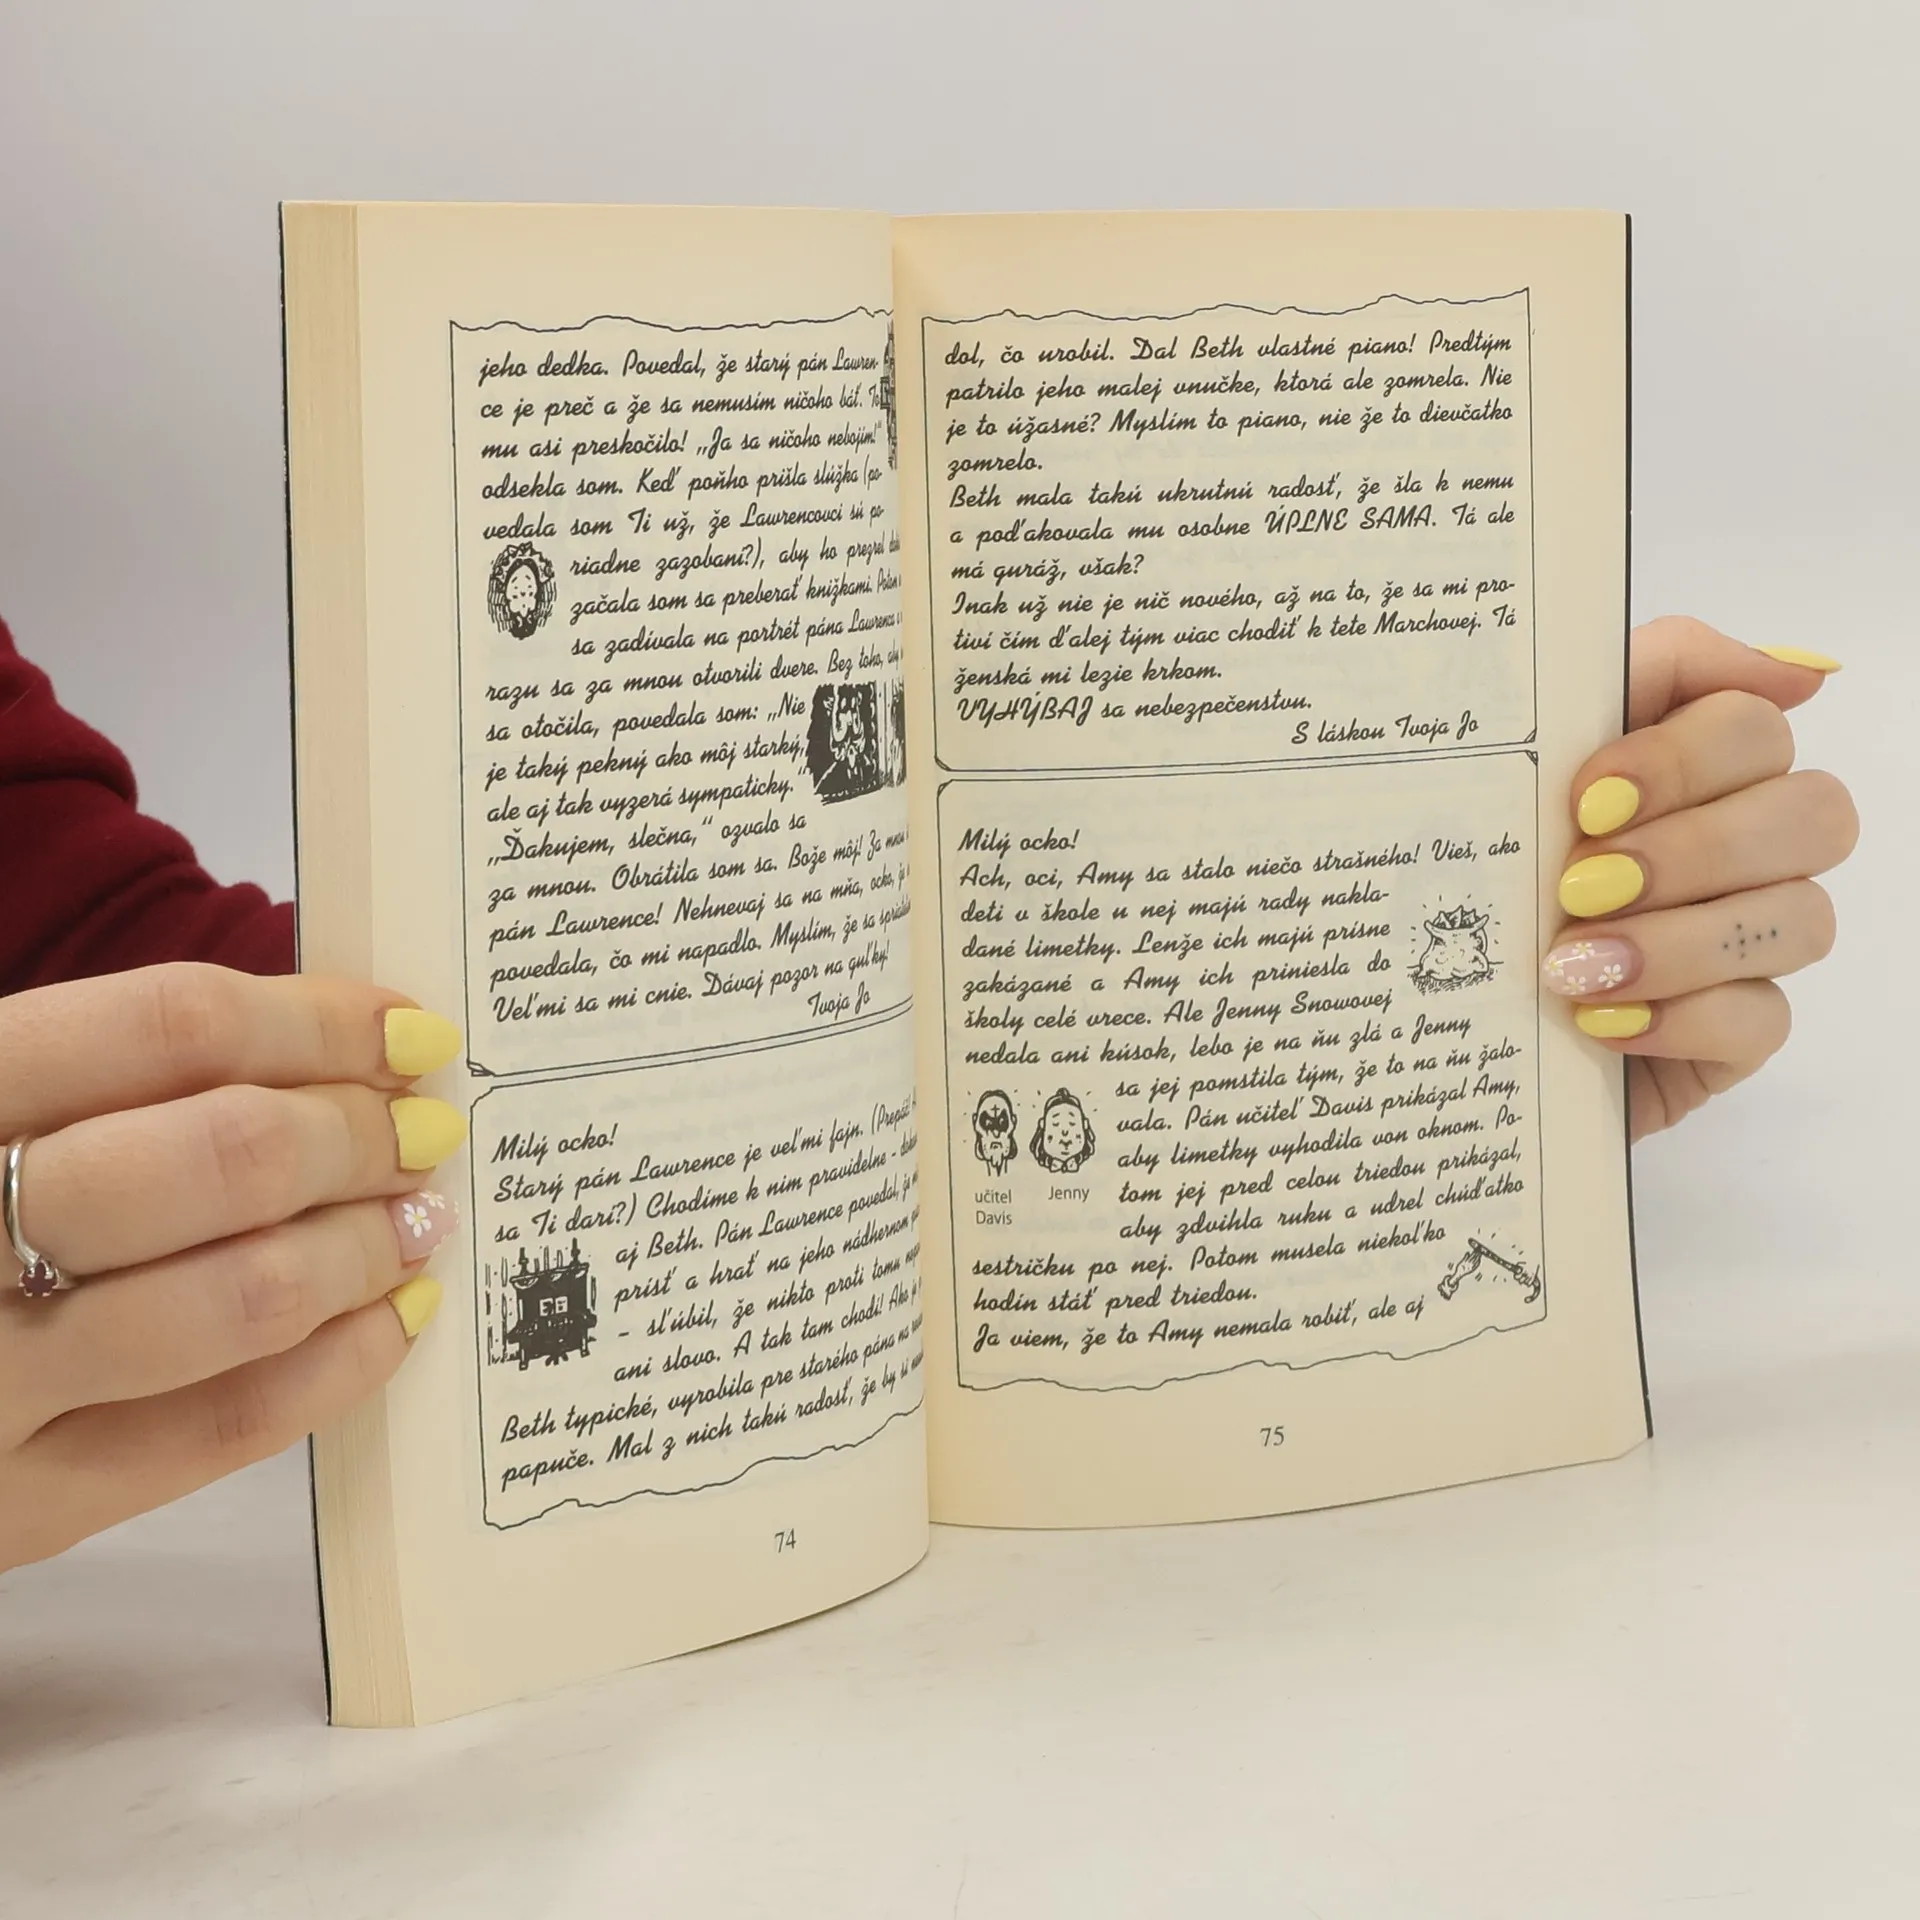 jeho dedka. Povedal, že starý pán Lawren-
ce je preč a že sa nemusím ničoho báť. To
mu asi preskočilo! „Ja sa ničoho nebojím!“
odsekla som. Keď poňho prišla slúžka (po-
vedala som Ti už, že Lawrencovci sú po-
riadne zazobaní?), aby ho prezrel
začala som sa preberať knižkami. Potom
sa zadívala na portrét pána Lawrenca
razu sa za mnou otvorili dvere. Bez toho,
sa otočila, povedala som: „Nie
je taký pekný ako môj starký,
ale aj tak vyzerá sympaticky.“
„Ďakujem, slečna,“ ozvalo sa
za mnou. Obrátila som sa. Bože môj! Za mnou
pán Lawrence! Nehnevaj sa na mňa, ocko,
povedala, čo mi napadlo. Myslím, že sa
Veľmi sa mi cnie. Dávaj pozor na guľky!
Tvoja Jo
Milý ocko!
Starý pán Lawrence je veľmi fajn. (Prepáč!
sa Ti darí?) Chodíme k nim pravidelne -
aj Beth. Pán Lawrence povedal,
prísť a hrať na jeho nádhernom
- sľúbil, že nikto proti tomu
ani slovo. A tak tam chodí! Ako je
Beth typické, vyrobila pre starého pána na
papuče. Mal z nich takú radosť, že by si
74
dol, čo urobil. Dal Beth vlastné piano! Predtým
patrilo jeho malej vnučke, ktorá ale zomrela. Nie
je to úžasné? Myslím to piano, nie že to dievčatko
zomrelo.
Beth mala takú ukrutnú radosť, že šla k nemu
a poďakovala mu osobne ÚPLNE SAMA. Tá ale
má guráž, však?
Inak už nie je nič nového, až na to, že sa mi pro-
tiví čím ďalej tým viac chodiť k tete Marchovej. Tá
ženská mi lezie krkom.
VYHÝBAJ sa nebezpečenstvu.
S láskou Tvoja Jo
Milý ocko!
Ach, oci, Amy sa stalo niečo strašného! Vieš, ako
deti v škole u nej majú rady nakla-
dané limetky. Lenže ich majú prísne
zakázané a Amy ich priniesla do
školy celé vrece. Ale Jenny Snowovej
nedala ani kúsok, lebo je na ňu zlá a Jenny
sa jej pomstila tým, že to na ňu žalo-
vala. Pán učiteľ Davis prikázal Amy,
aby limetky vyhodila von oknom. Po-
tom jej pred celou triedou prikázal,
aby zdvihla ruku a udrel chúďatko
učitel Jenny
Davis
sestričku po nej. Potom musela niekoľko
hodín stáť pred triedou.
Ja viem, že to Amy nemala robiť, ale aj
75